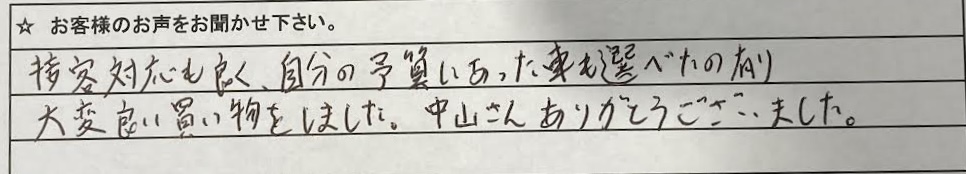 ☆ お客様のお声をお聞かせ下さい。
接客対応も良く、自分の予算にあった車も選べたの有り
大変良い買い物をしました。中山さんありがとうございました。